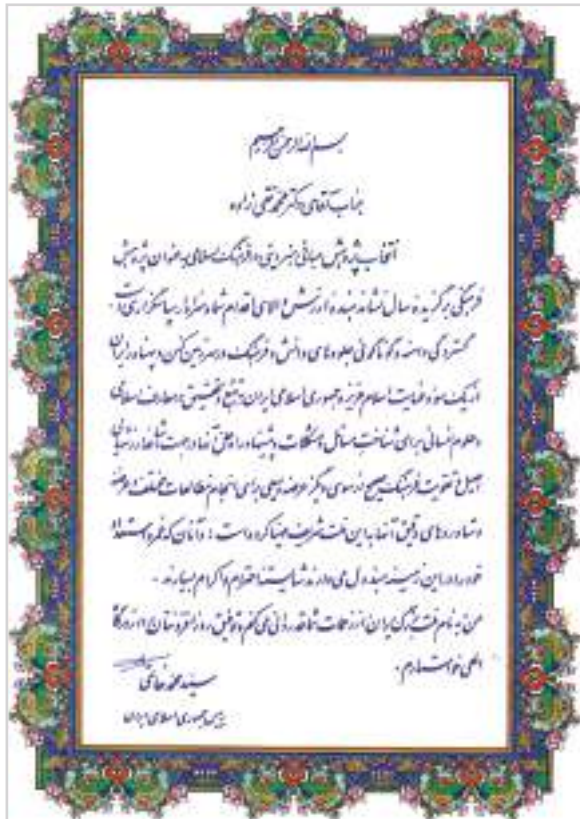 بسم الله الرحمن الرحیم
جناب آقای دکتر محمد تقی زاده
انتخاب پژوهش مبانی هنر دینی در فرهنگ اسلامی به عنوان پژوهش
فرهنگی برگزیده سال نشاندهنده ارزش والای اقدام شما و سزاوار سپاسگزاری است.
گستردگی دامنه و گوناگونی جلوه‌های دانش و فرهنگ در سرزمین کهن و پهناور ایران
از یک سو و عنایت اسلام عزیز و جمهوری اسلامی ایران به تتبع و تحقیق در معارف اسلامی
و علوم انسانی برای شناخت مسائل و مشکلات و پیشنهاد راه حل آنها در جهت
اصیل و تقویت فرهنگ صحیح از سوی دیگر عرصه وسیعی برای انجام مطالعات مختلف و عرضه
دستاوردهای دقیق آنها به این ملت شریف مهیا کرده است؛ و آنان که عمر و استعداد
خود را در این زمینه مبذول می دارند شایسته احترام و اکرام بسیارند.
من به نام ملت بزرگ ایران از زحمات شما قدردانی می کنم و توفیق روزافزونتان را از درگاه
الهی خواستارم.
سید محمد خاتمی
رئیس جمهوری اسلامی ایران